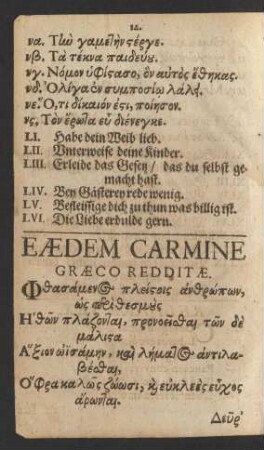 22.
να. Τὼ γαμετὴν στέργε.
νβ. Τὰ τέκνα παιδεύου.
νγ. Νόμον ὑφίστασο, ὃν αὐτὸς ἔθηκας.
νδ. Ὀλίγα ἐν συμποσίῳ λάλῃ.
νε. Ὅ,τι δίκαιόν ἐστι, ποίησον.
νς. Τὸν ἔρωτα εὖ διένεγκε.
LI. Habe dein Weib lieb.
LII. Unterweise deine Kinder.
LIII. Erleide das Gesetz / das du selbst ge-
macht hast.
LIV. Bey Gästerey rede wenig.
LV. Befleissige dich zu thun was billig ist.
LVI. Die Liebe erdulde gern.
EÆDEM CARMINE
GRÆCO REDDITÆ.
Φθασάμενος πλείστοις ἀνθρώπων,
ὡς
Ἠθῶν πλάζονται, προνοεῖσθαι τῶν δὲ
μάλιστα
Ἄξιον ὠϊσάμην, καὶ λήματος ἀντιλα-
βέσθαι,
Ὄφρα καλῶς ζώωσι, κ εὐκλεὲς εὖχος
ἄρωνται.
Δεῦρ'